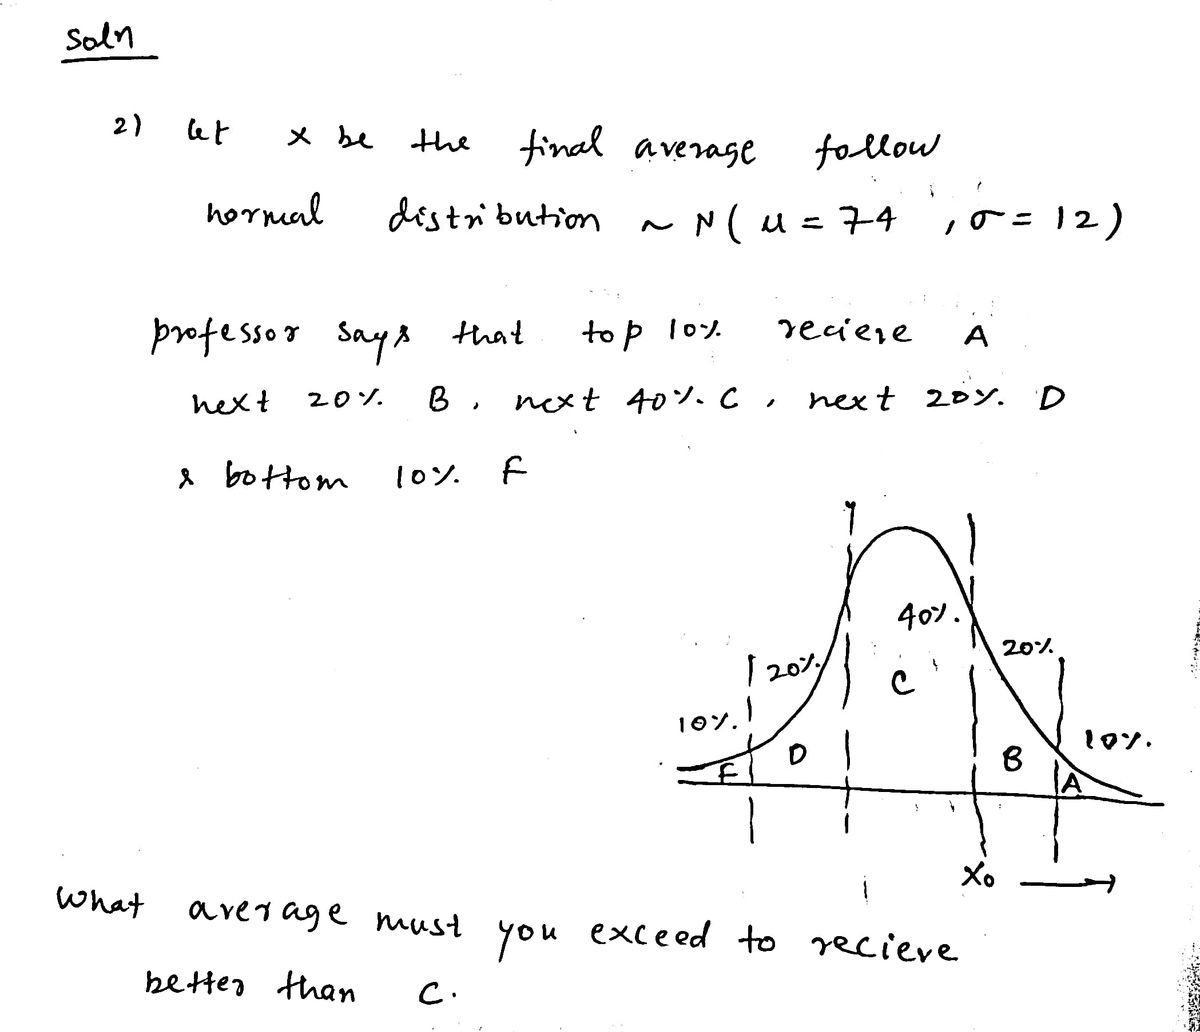 Soln
2) let x be the final average follow
normal distribution ~ N( μ = 74 , σ = 12 )
professor says that top 10% reciere A
next 20% B , next 40% C , next 20% D
& bottom 10% F
40%.
20%.
20%.
C
10%.
10%.
D
B
F
A
X₀ →
What average must you exceed to recieve
better than C.